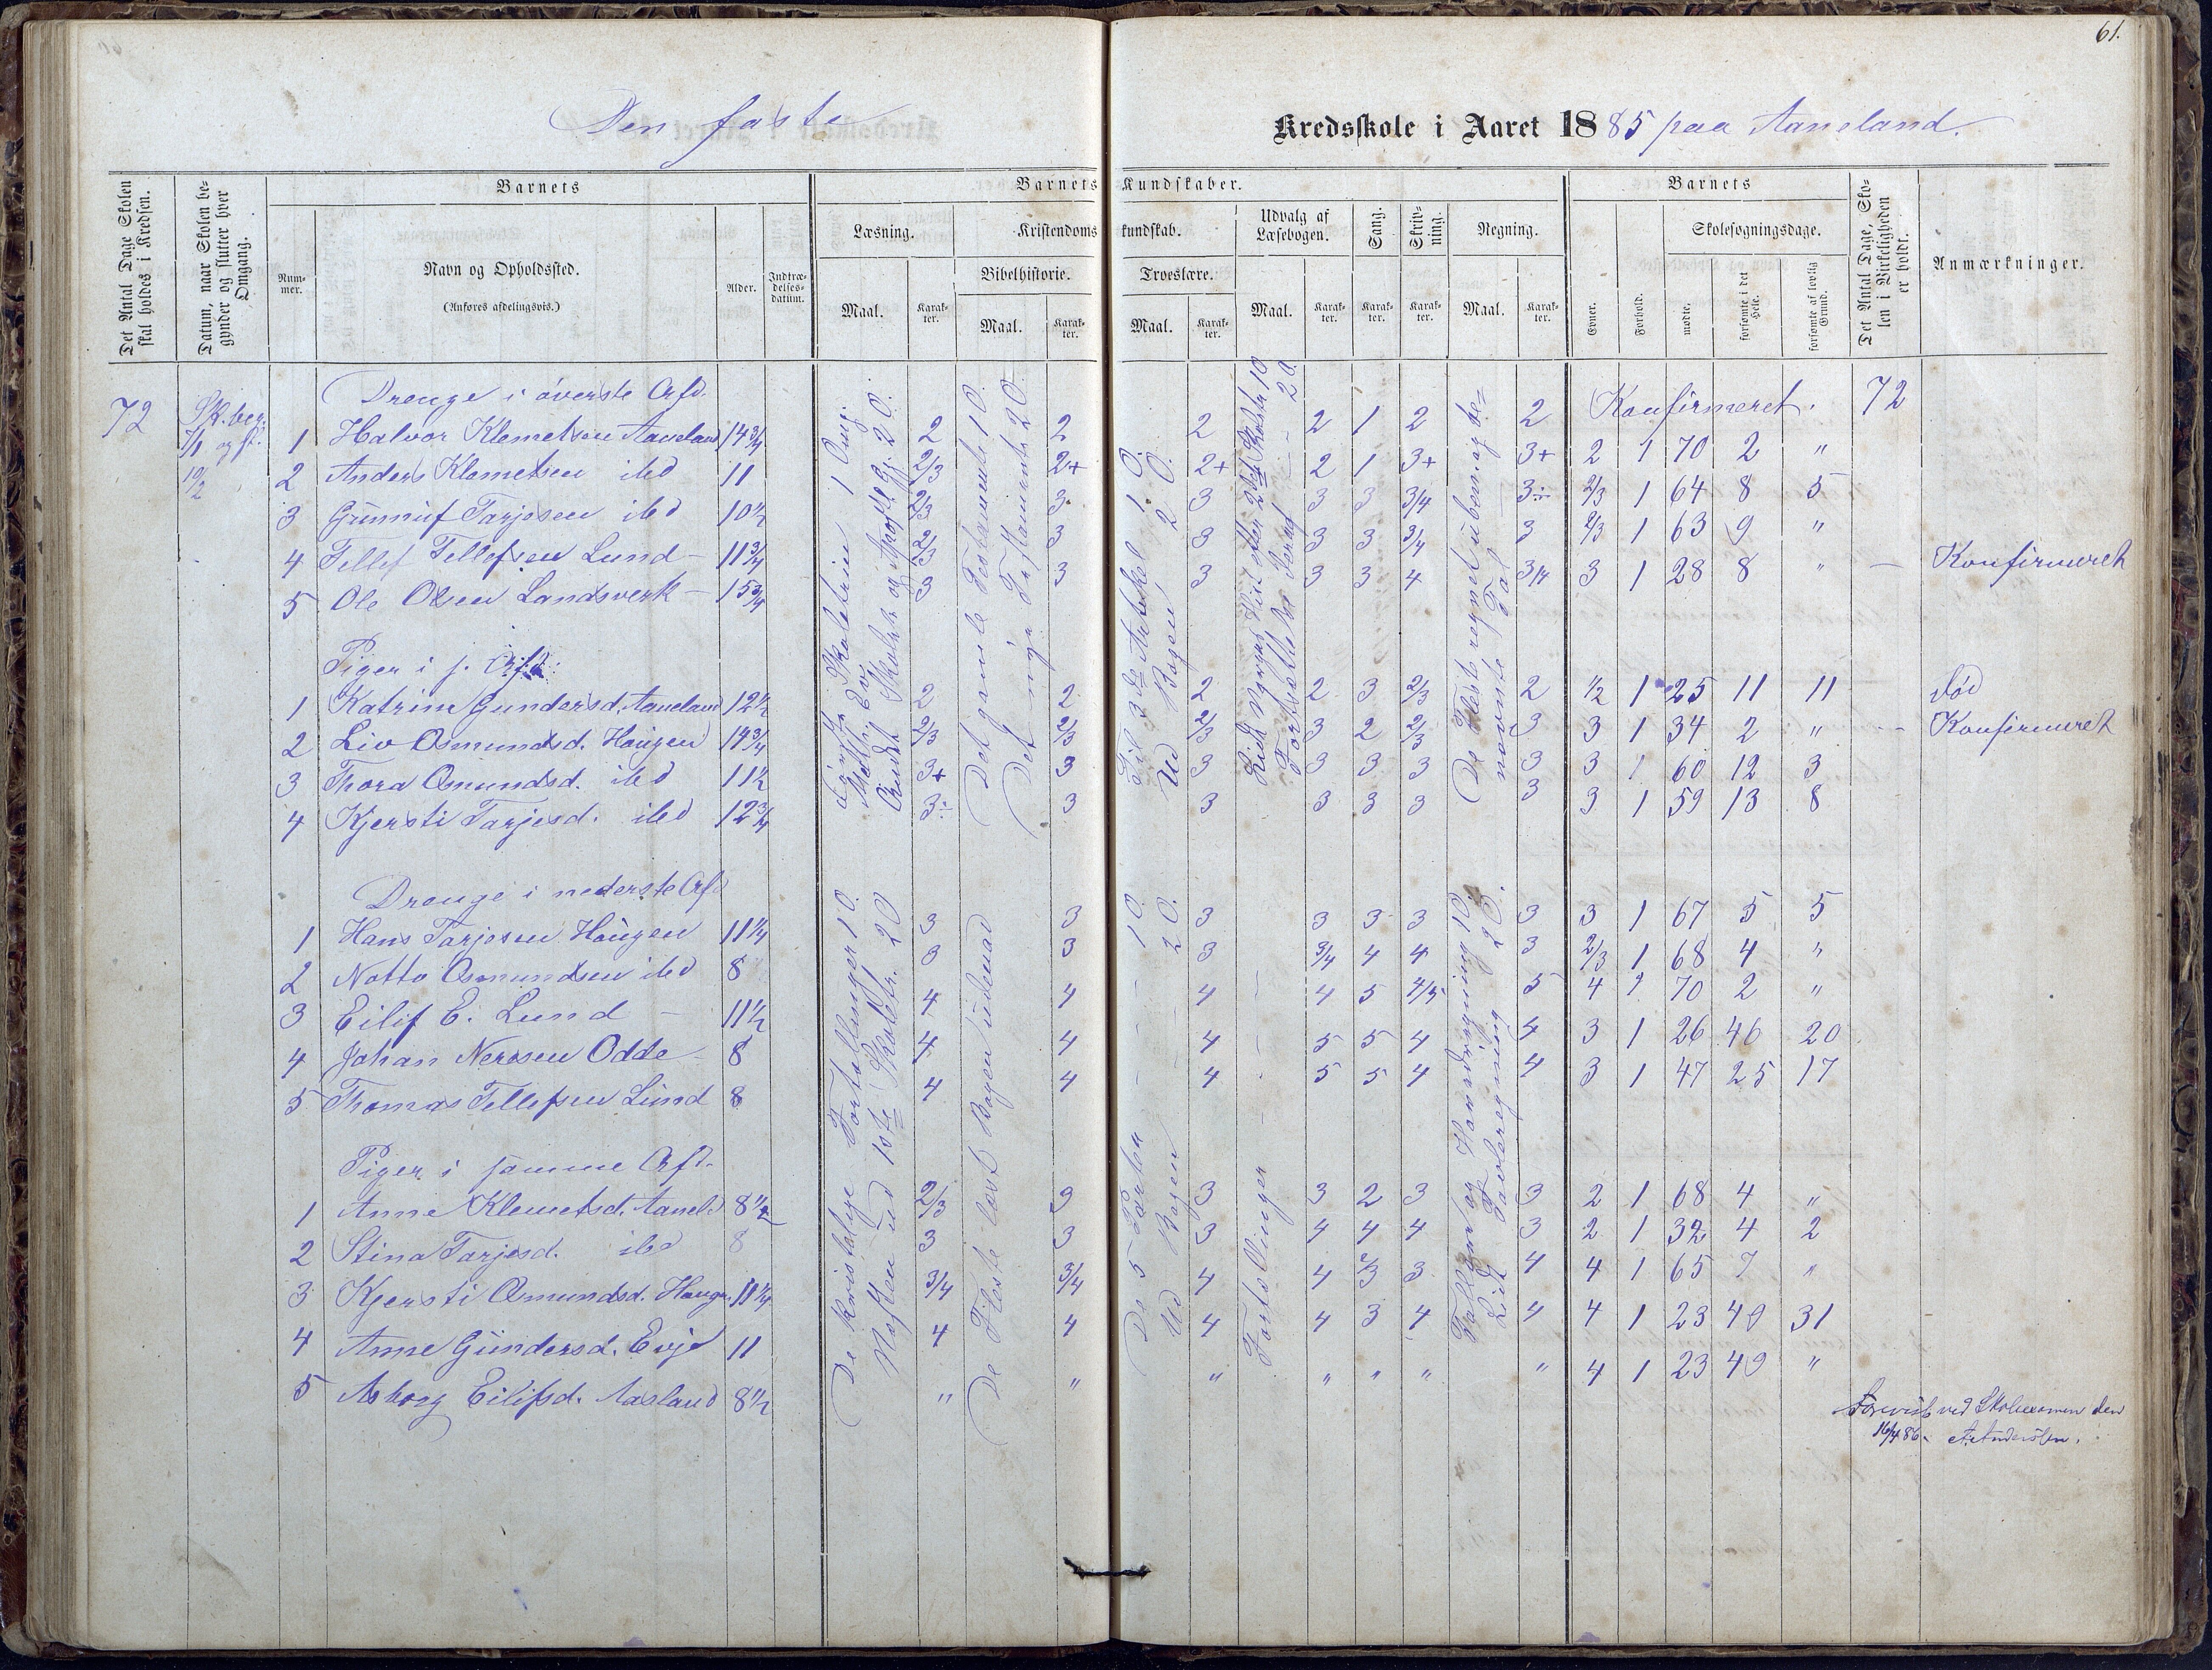 61.
Den faste Kredsskole i Aaret 1885 paa Aaneland.
Det Antal Dage Skolen skal holdes i Kredsen.
Datum, naar Skolen begynder og slutter hver Omgang.
Barnets
Nummer.
Navn og Opholdssted.
(Anføres afdelingsvis.)
Alder.
Indtrædelsesdatum.
Barnets Kundskaber.
Læsning.
Maal.
Karakter.
Kristendomskundskab.
Bibelhistorie.
Maal.
Karakter.
Troeslære.
Maal.
Karakter.
Udvalg af Læsebogen.
Maal.
Karakter.
Sang.
Karakter.
Skrivning.
Karakter.
Regning.
Maal.
Karakter.
Barnets
Evner.
Forhold.
Skolesøgningsdage.
mødte.
forsømte i det Hele.
forsømte af lovlig Grund.
Det Antal Dage, Skolen i Virkeligheden er holdt.
Anmærkninger.
72 Sk. beg. 7/1 og sl. 10/2
Drenge i øverste Afd.
1 Halvor Klemetsen Aaneland 14 3/4 2 2 2 2 1 2 2 Konfirmeret. 72
2 Anders Klemetsen ibd 11 2/3 2+ 2+ 2 1 3+ 3+ 2 1 70 2 "
3 Gunnuf Tarjesen ibd 10 1/2 2/3 3 3 3 3 3/4 3÷ 2/3 1 64 8 5
4 Tellef Tellefsen Lund 11 3/4 2/3 3 3 3 3 3/4 3 2/3 1 63 9 "
5 Ole Olsen Landsverk 15 3/4 3 3 3 3 3 4 3/4 3 1 28 8 " Konfirmeret
Piger i s. Afd.
1 Katrine Gundersd. Aaneland 12 1/2 2 2 2 2 3 2/3 2 1/2 1 25 11 11 Død
2 Liv Osmundsd. Haugen 14 3/4 2/3 2/3 2/3 3 2 2/3 3 3 1 34 2 " Konfirmeret
3 Thora Osmundsd. ibd 11 1/2 3+ 3 3 3 3 3 3 3 1 60 12 3
4 Kjersti Tarjesd. ibd 12 3/4 3÷ 3 3 3 3 3 3 3 1 59 13 8
Det gamle Testamente 10.
Det nye Testamente 20.
Til 3de Artikel 10.
Ud Bogen 20.
Drenge i nederste Afd
1 Hans Tarjesen Haugen 11 1/4 3 3 3 3 3 3 3 3 1 67 5 5
2 Notto Osmundsen ibd 8 3 3 3 3/4 4 4 3 2/3 1 68 4 "
3 Eilif E. Lund 11 1/2 4 4 4 4 5 4/5 5 4 1 70 2 "
4 Johan Nersen Odde 8 4 4 4 5 5 4 4 3 1 26 46 20
5 Thomas Tellefsen Lund 8 4 4 4 5 5 4 4 3 1 47 25 17
Piger i samme Afd.
1 Anne Klemetsd. Aanel. 8 1/2 2/3 3 3 3 2 3 3 2 1 68 4 "
2 Stina Tarjesd. ibd 8 3 3 3 4 4 4 3 2 1 32 4 2
3 Kjersti Osmundsd. Haugen 11 1/4 3/4 3/4 4 4 2/3 3 4 4 1 65 7 "
4 Anne Gundersd. Evje 11 4 4 4 4 3 4 4 4 1 23 49 31
5 Asborg Eilifsd. Aasland 8 1/2 " " " " " " " 4 1 23 49 "
De kristelige Fortællinger 10.
Heften ud 1ste Skoletr. 20
De fleste lært Bogen udenad
De 5 Parter 10.
Ud Bogen 20.
Forts. Vinger
Lidt Tavleregning 20.
Forevist ved Skoleexamen den
16/4 86. A. Anderssen.